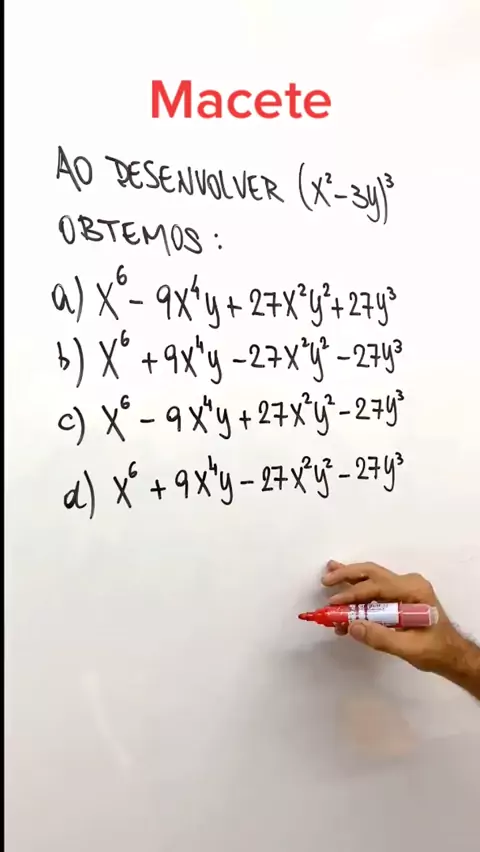 Macete
AO DESENVOLVER (x² - 3y)³
OBTEMOS:
a) x⁶ - 9x⁴y + 27x²y² + 27y³
b) x⁶ + 9x⁴y - 27x²y² - 27y³
c) x⁶ - 9x⁴y + 27x²y² - 27y³
d) x⁶ + 9x⁴y - 27x²y² - 27y³